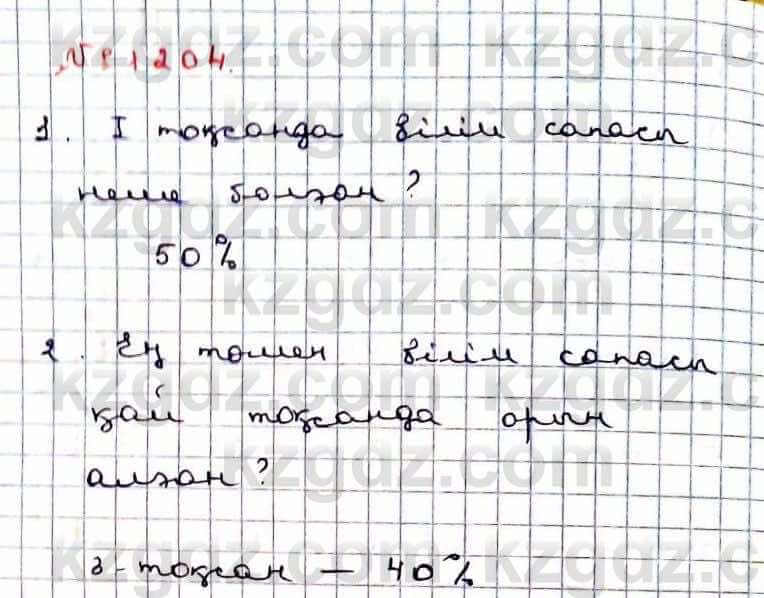 № 1204.
1. I тоқсанда білім сапасы
неше болған?
50%
2. Ең төмен білім сапасы
қай тоқсанда орын
алған?
3-тоқсан — 40%
kzgdz.com